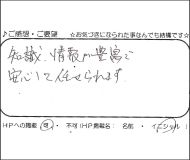 ♪ご感想・ご要望 ☆お気づきになられた事なんでも結構です☆
知識、情報が豊富で
安心して任せられます。
HPへの掲載(可・不可(HP掲載名: 名前・イニシャル)